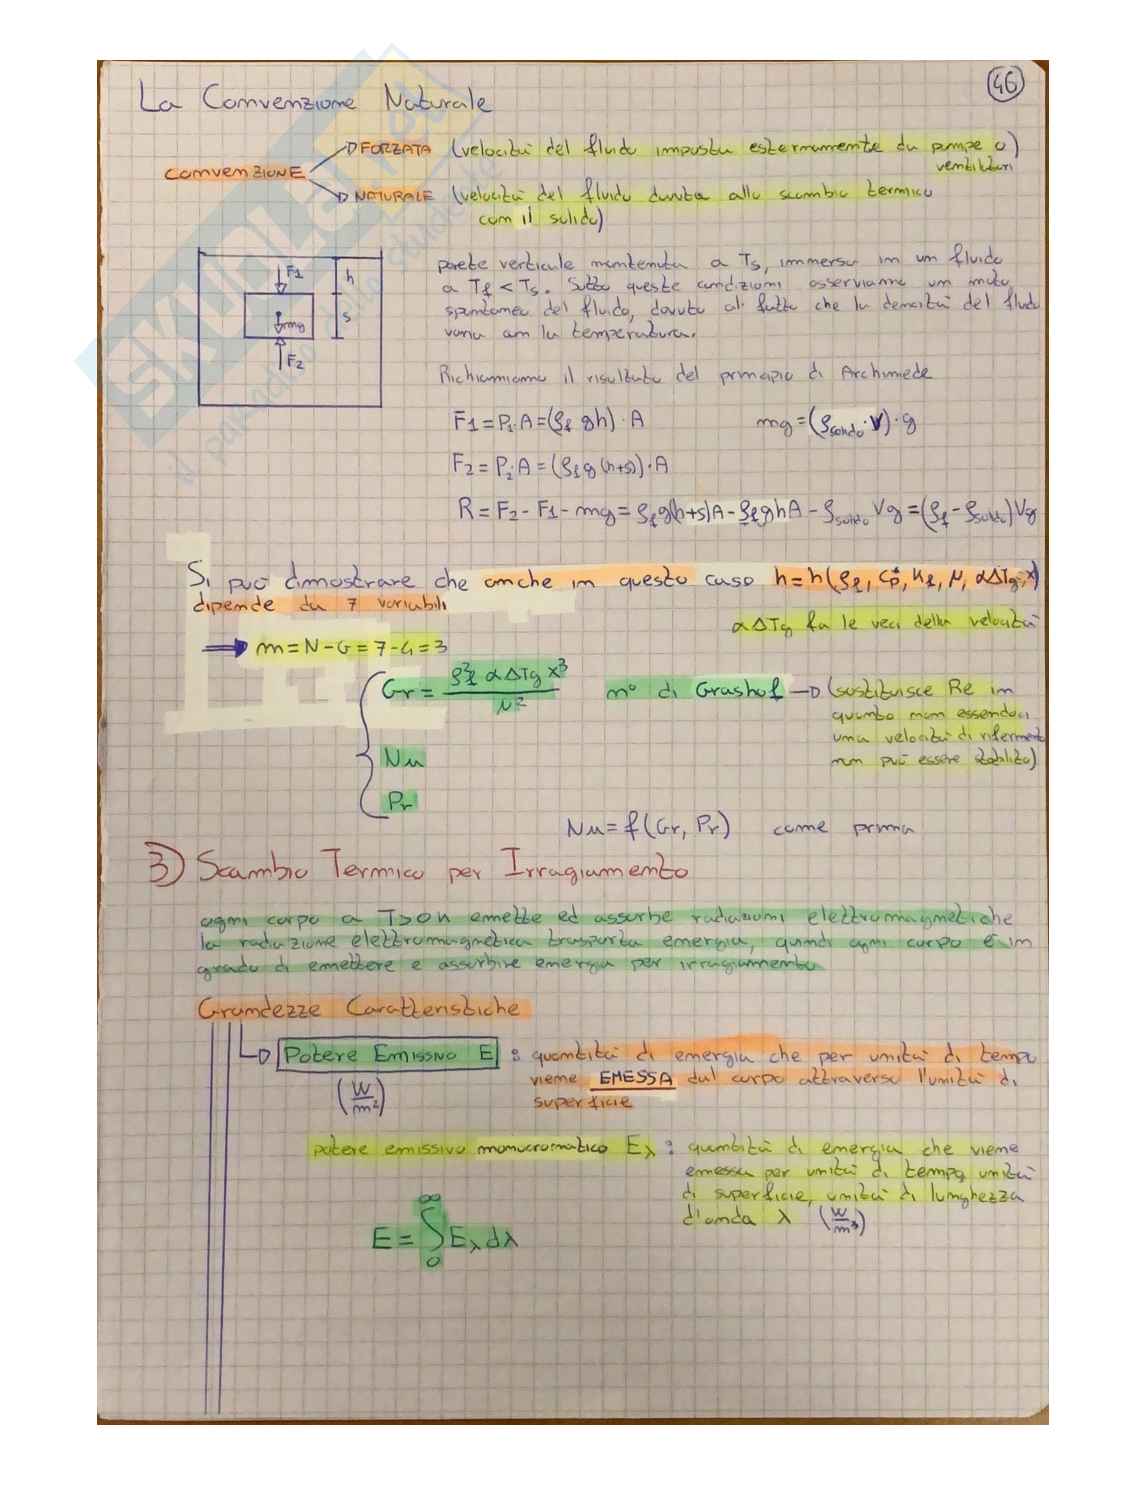 46
La Convenzione Naturale
FORZATA (velocità del fluido imposta esternamente da pompe o
ventilatori)
CONVENZIONE
NATURALE (velocità del fluido dovuta allo scambio termico
con il solido)
parete verticale mantenuta a Ts, immersa in un fluido
a Tf < Ts. Sotto queste condizioni osserviamo un moto
spontaneo del fluido, dovuto al fatto che la densità del fluido
varia con la temperatura.
F1
h
s
mg
F2
Richiamiamo il risultato del principio di Archimede
F1 = P1·A = (ρf gh)·A mg = (ρsolido·V)·g
F2 = P2·A = (ρf g(h+s))·A
R = F2 - F1 - mg = ρf g(h+s)A - ρf ghA - ρsolido Vg = (ρf - ρsolido)Vg
Si può dimostrare che anche in questo caso h = h(ρf, cp*, Kf, μ, αΔTg, x)
dipende da 7 variabili
αΔTg fa le veci della velocità
m = N - G = 7 - 4 = 3
Gr = ρf² αΔTg x³ / μ² n° di Grashof → (sostituisce Re in
quanto non essendoci
una velocità di riferimento
non può essere stabilito)
Nu
Pr
Nu = f(Gr, Pr) come prima
3) Scambio Termico per Irragiamento
ogni corpo a T>0K emette ed assorbe radiazioni elettromagnetiche
la radiazione elettromagnetica trasporta energia, quindi ogni corpo è in
grado di emettere e assorbire energia per irragiamento
Grandezze Caratteristiche
Potere Emissivo E : quantità di energia che per unità di tempo
viene EMESSA dal corpo attraverso l'unità di
superficie
(W/m²)
potere emissivo monocromatico Eλ : quantità di energia che viene
emessa per unità di tempo, unità
di superficie, unità di lunghezza
d'onda λ (W/m³)
E = ∫₀^∞ Eλ dλ
SKUOLA